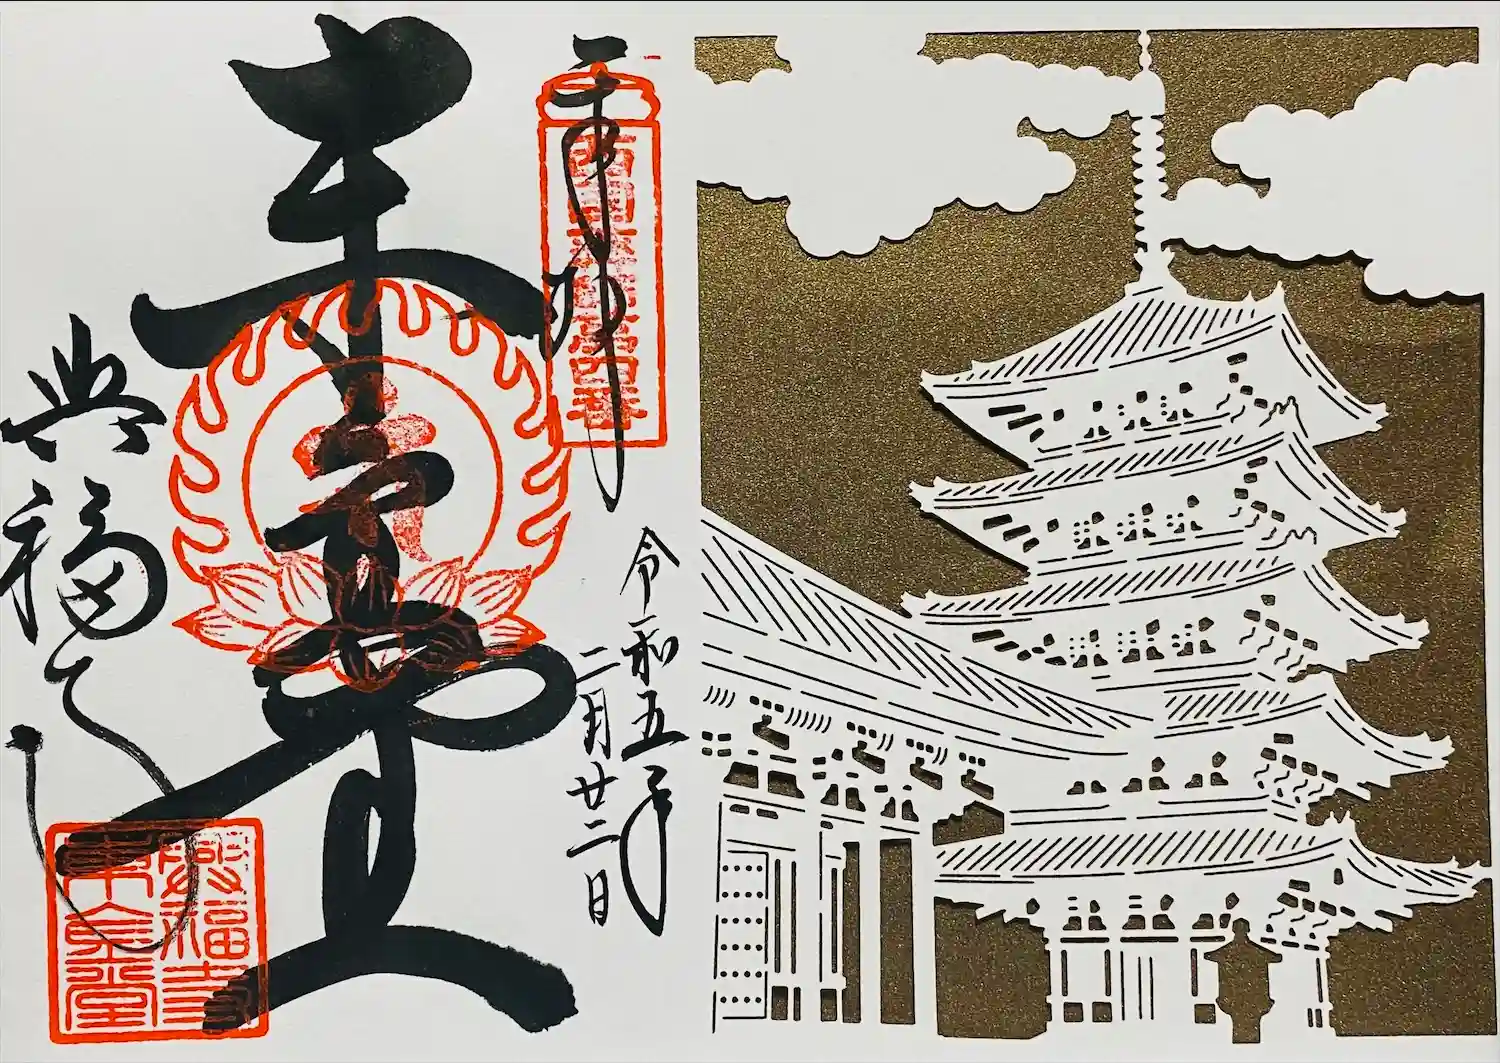 奉拝
西国薬師第四番
令和五年
二月廿二日
東金堂
興福寺
興福寺
東金堂